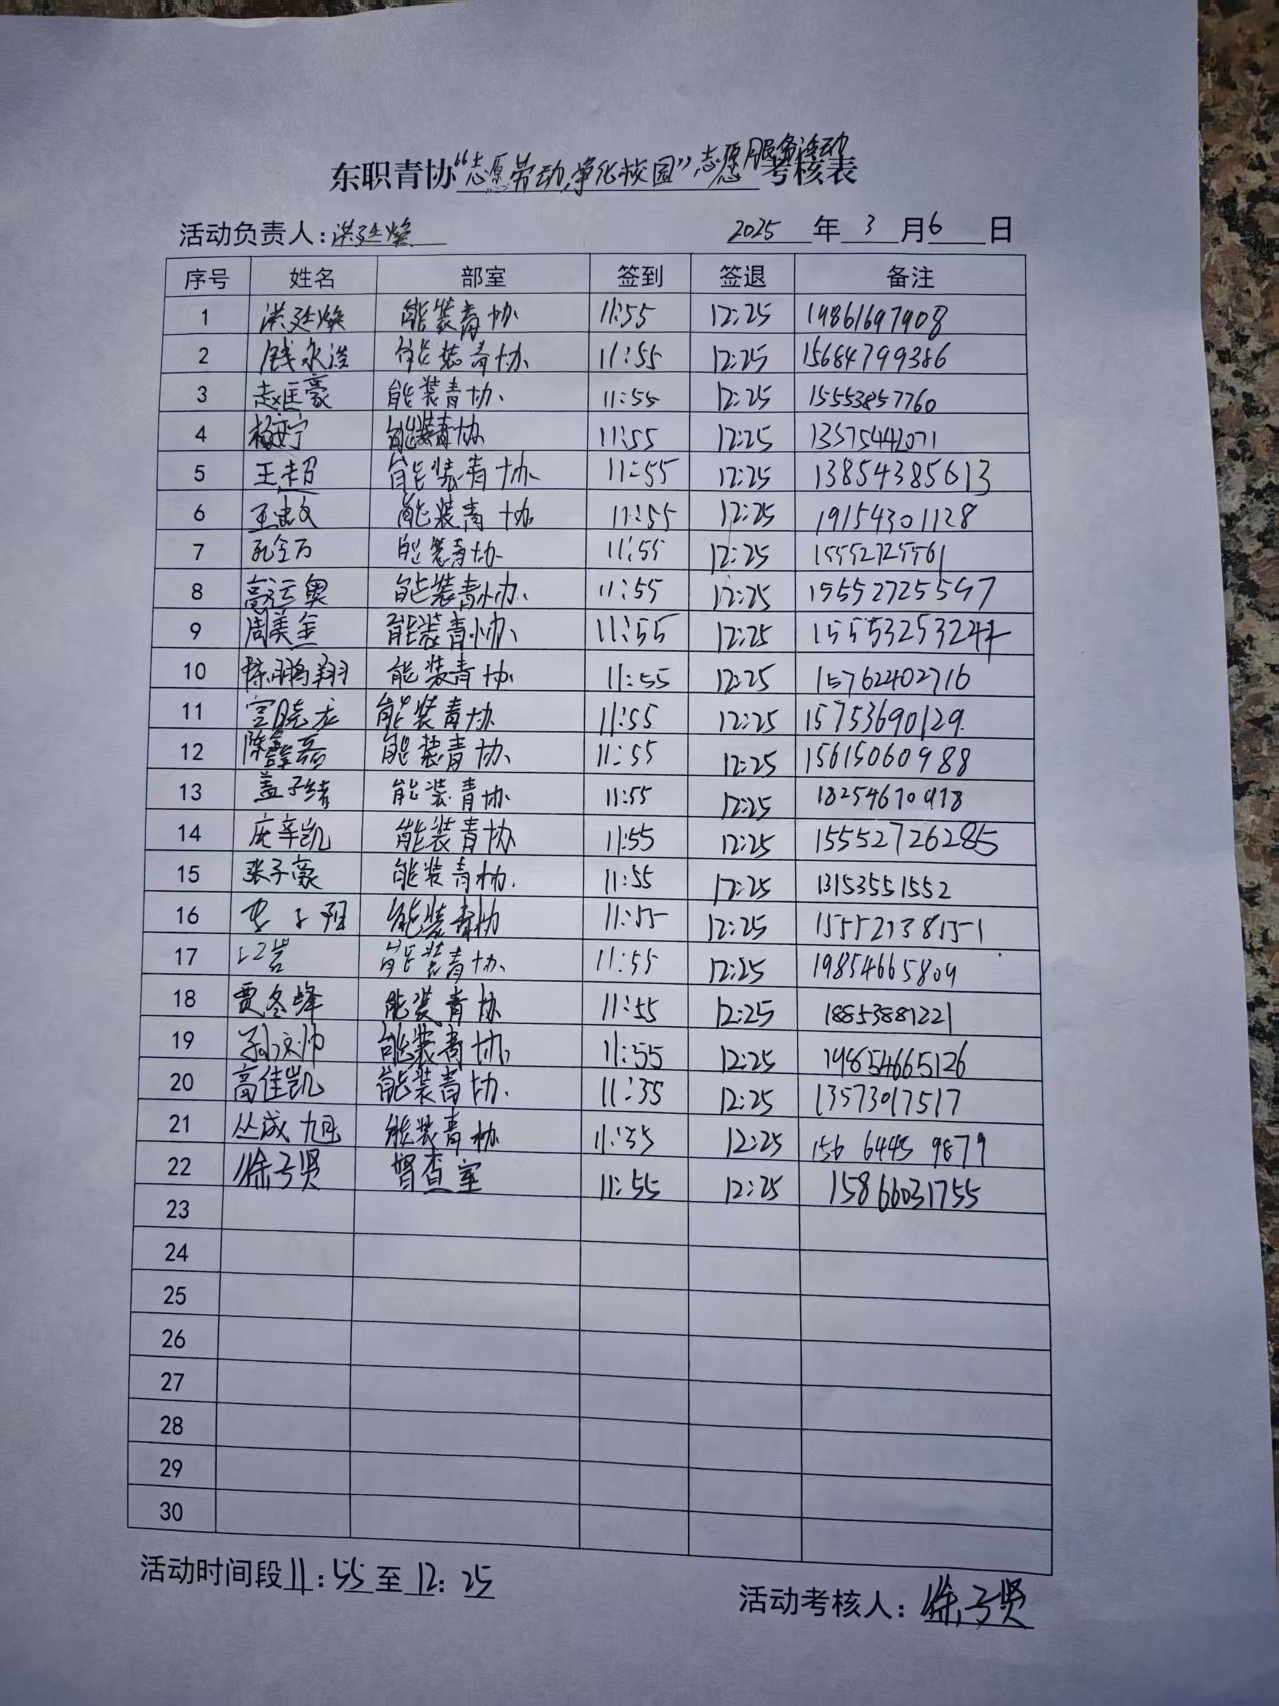 东职青协“志愿劳动,净化校园”志愿服务活动考核表
活动负责人:洪延焕 2025年3月6日
序号 姓名 部室 签到 签退 备注
1 洪延焕 能装青协 11:55 12:25 19861697908
2 钱永浩 能装青协 11:55 12:25 15684799386
3 赵匡豪 能装青协 11:55 12:25 15553857760
4 能装青协 11:55 12:25 13575442071
5 王超 能装青协 11:55 12:25 13854385613
6 能装青协 11:55 12:25 19154301128
7 孔令万 能装青协 11:55 12:25 15552725561
8 高运奥 能装青协 11:55 12:25 15552725597
9 周美金 能装青协 11:55 12:25 15553253244
10 陈鹏翔 能装青协 11:55 12:25 15762402716
11 宫晓龙 能装青协 11:55 12:25 15753690129
12 陈鑫磊 能装青协 11:55 12:25 15615060988
13 盖子绪 能装青协 11:55 12:25 18254670918
14 庞辛凯 能装青协 11:55 12:25 15552726285
15 张子豪 能装青协 11:55 12:25 13153551552
16 能装青协 11:55 12:25
17 能装青协 11:55 12:25 19854665809
18 贾冬峰 能装青协 11:55 12:25 18853881221
19 孙文帅 能装青协 11:55 12:25 198654665126
20 高佳凯 能装青协 11:35 12:25 13573017517
21 丛成旭 能装青协 11:35 12:25 156 6445 9879
22 徐子贤 督查室 11:55 12:25 15866031755
23
24
25
26
27
28
29
30
活动时间段11:55至12:25
活动考核人:徐子贤